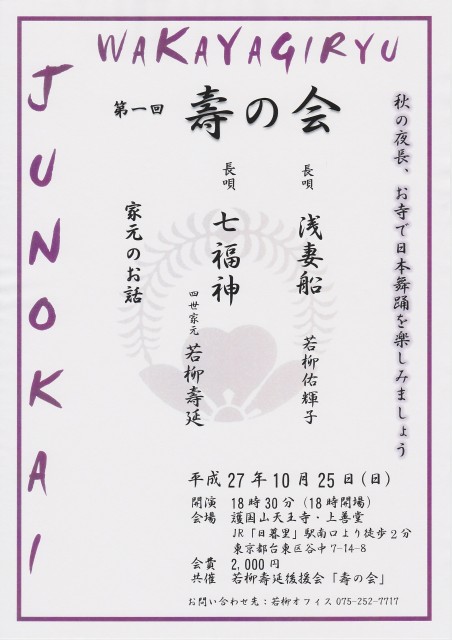 WAKAYAGIRYU
JUNOKAI
第一回 壽の会
秋の夜長、お寺で日本舞踊を楽しみましょう
長唄 浅妻船 若柳佑輝子
長唄 七福神 四世家元 若柳壽延
家元のお話
平成27年10月25日(日)
開演 18時30分(18時開場)
会場 護国山天王寺・上善堂
JR「日暮里」駅南口より徒歩2分
東京都台東区谷中7-14-8
会費 2,000円
共催 若柳壽延後援会「壽の会」
お問い合わせ先:若柳オフィス 075-252-7717